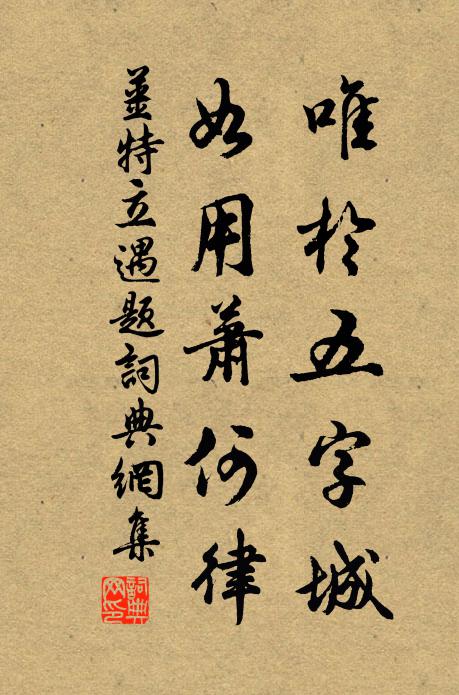 唯於五字城
如用蕭何律
姜特立遇題詞典網集
詞典网印